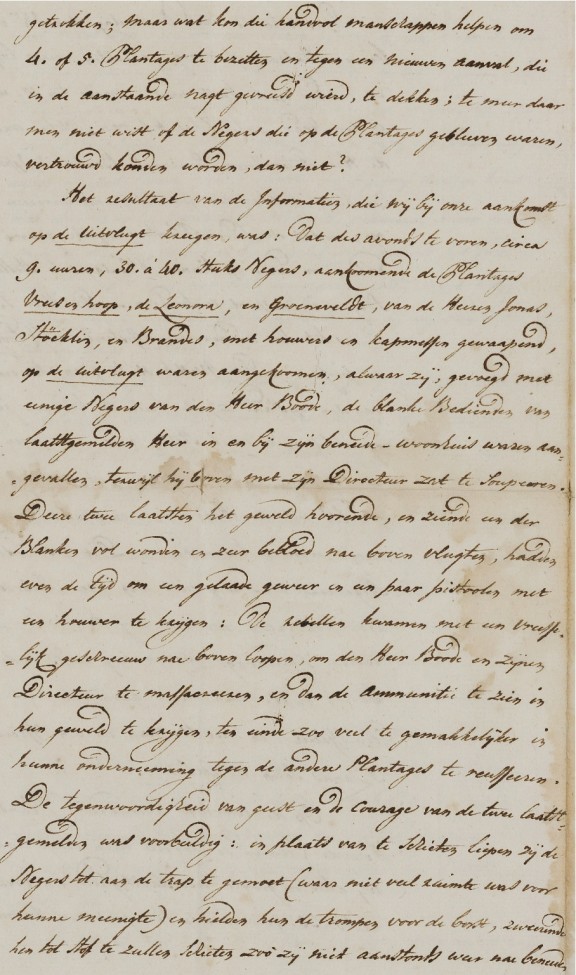 getrokken; maar wat kon die handvol manschappen helpen om
4. of 5. Plantages te bezetten en tegen een nieuwen aanval, die
in de aanstaande nagt gevreesd wierd, te dekken; te meer daar
men niet wist of de Negers die op de Plantages gebleeven waren,
vertrouwd konden worden, dan niet?
Het resultaat van de Informatien, die wij bij onze aankomst
op de uitvlugt kreegen, was: Dat des avonds te voren, circa
9. uuren, 30. á 40. Stuks Negers, aankoomende de Plantages
Vreesenhoop, de Leonora, en Groeneveldt, van de Heeren Jonas,
Stöcklin, en Brandes, met houwers en kapmessen gewaapend,
op de uitvlugt waren aangekoomen, alwaar zij, gevoegd met
einige Negers van den Heer Boode, de blanke Bedienden van
laatstgemelden Heer in en bij zijn beneede-woonhuis waren aan-
-gevallen, terwijl hij boven met zijn Directeur zat te Soupeeren.
Deeze twee laatsten het geweld hoorende, en ziende een der
Blanken vol wonden en zeer bebloed nae boven vlugten, hadden
even de tijd om een gelaade geweer en een paar pistoolen met
een houwer te krijgen: De rebellen kwamen met een vreesse-
-lijk geschreeuw nae boven loopen, om den Heer Boode en zijnen
Directeur te massacreeren, en dan de ammunitie te zien in
hun geweld te krijgen, ten einde zoo veel te gemakkelijker in
hunne onderneeming tegen de andere Plantages te reusseeren.
De tegenwoordigheid van geest en de courage van de twee laatst-
-gemelden was voorbeeldig: in plaats van te schieten liepen zij de
Negers tot aan de trap te gemoet (waar niet veel ruimte was voor
hunne meenigte) en hielden hun de trompen voor de borst, zweerende
hen tot Stof te zullen schieten zoo zij niet aanstonds weer nae beneden